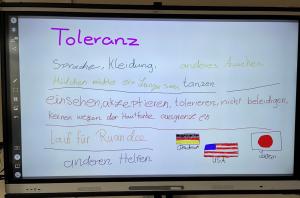 Toleranz
Sprache, Kleidung, anderes Aussehen
Mädchen möchte ein Junge sein tanzen
einsehen, akzeptieren, tolerieren, nicht beleidigen,
keinen wegen der Hautfarbe ausgrenzen
Lauf für Ruanda
anderen Helfen
USA